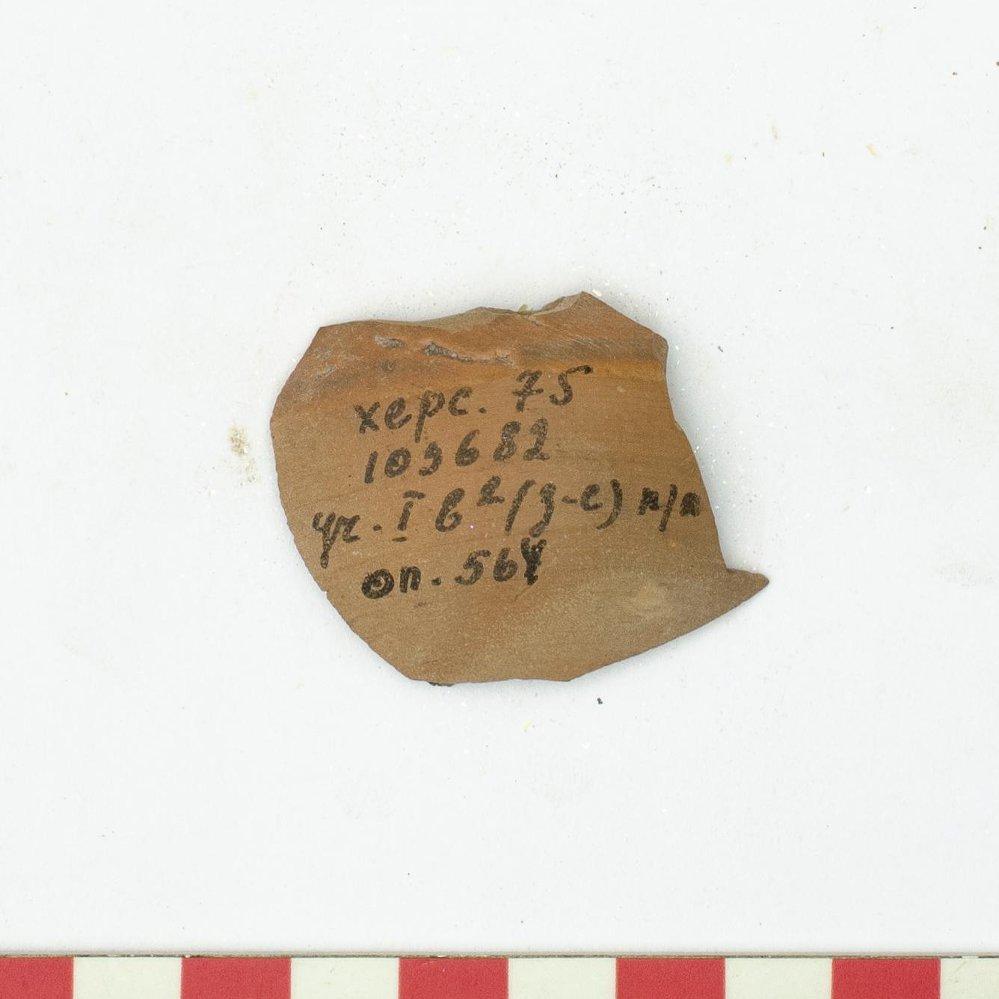 херс. 75
109682
уч. I в² (д-е) п/п
оп. 564